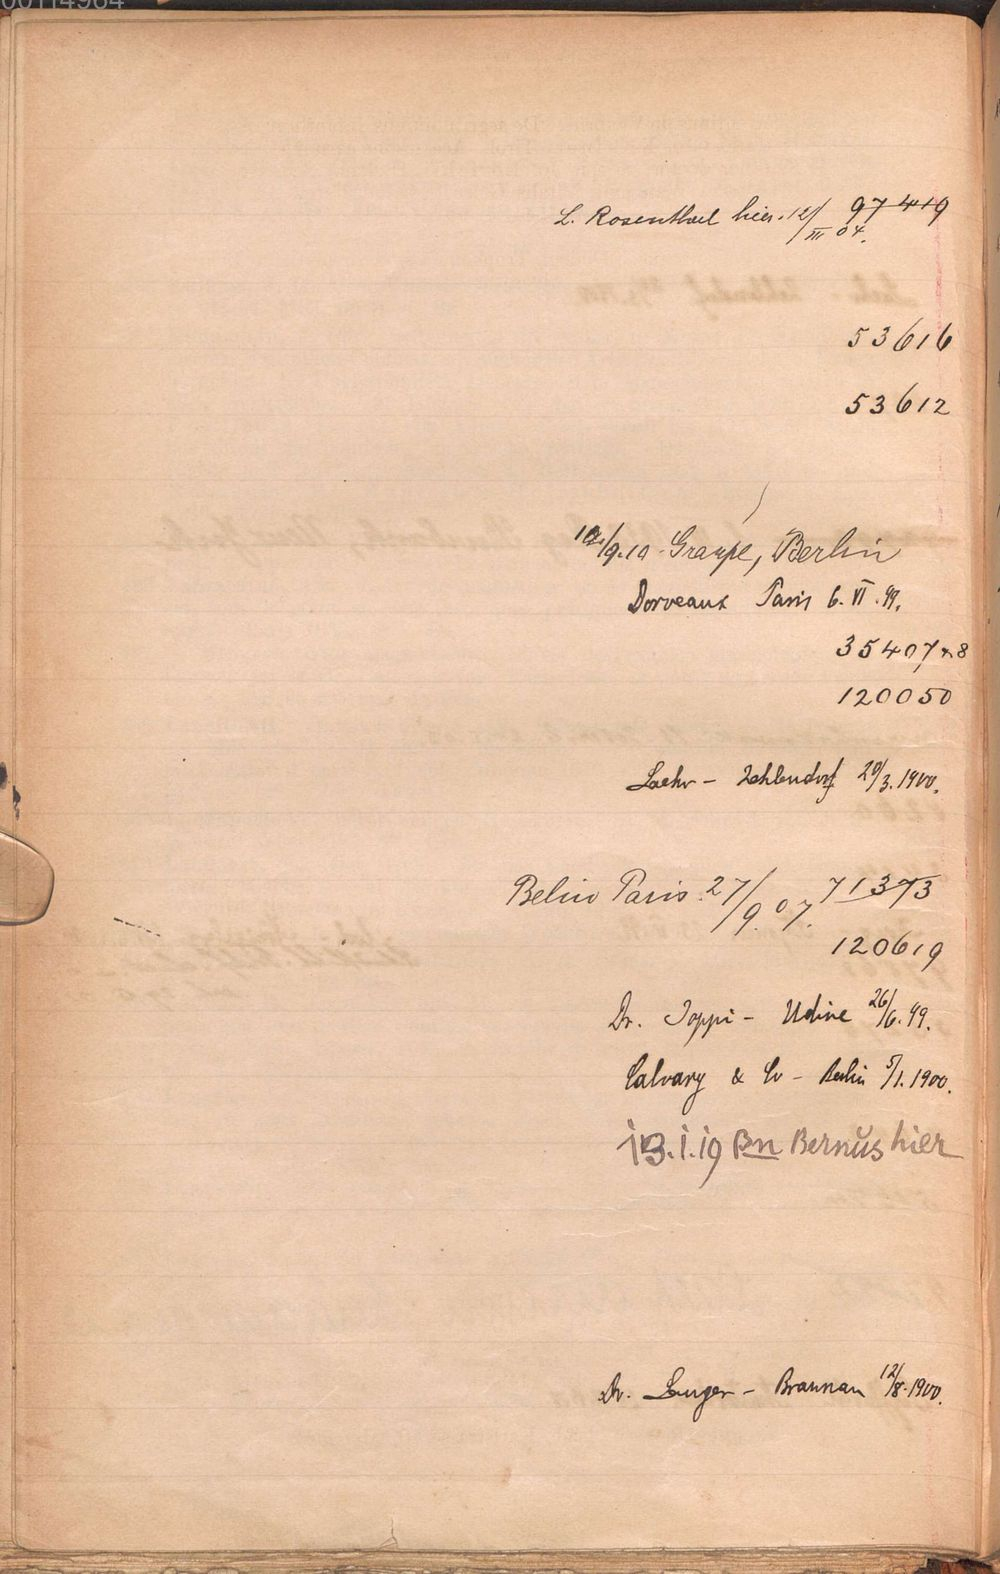 00114964
L. Rosenthal hier. 12/III 04. 97419
53616
53612
9.10. Graupe, Berlin
Dorveaux Paris 6. VI. 99.
35407 + 8
120050
Laehr - Zehlendorf 20/3. 1900.
Belin Paris. 27/9. 07. 71373
120619
Dr. Joppi - Udine 26/6. 99.
Calvary & Co - Berlin 5/1. 1900.
13.I.19 Bn Bernus hier
Dr. - Braunau 12/8. 1900.